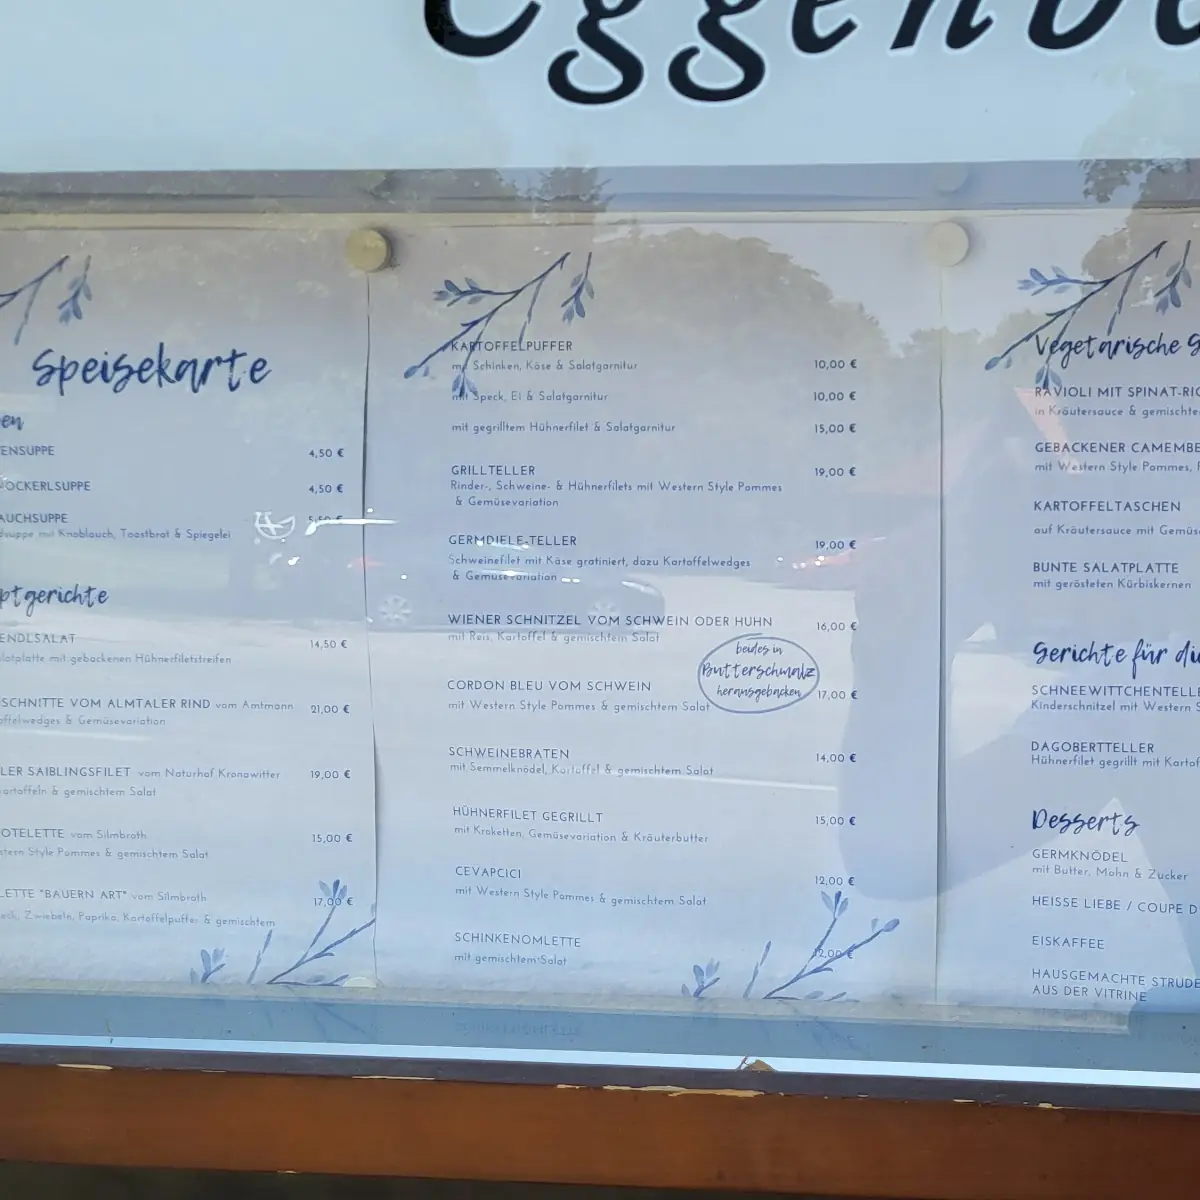 Eggenbe
Speisekarte
en
ENSUPPE 4,50 €
OCKERLSUPPE 4,50 €
AUCHSUPPE 5,50 €
suppe mit Knoblauch, Toastbrot & Spiegelei
ptgerichte
ENDLSALAT 14,50 €
latplatte mit gebackenen Hühnerfiletstreifen
SCHNITTE VOM ALMTALER RIND vom Amtmann 21,00 €
offelwedges & Gemüsevariation
LER SAIBLINGSFILET vom Naturhof Kronawitter 19,00 €
artoffeln & gemischtem Salat
OTELETTE vom Silmbroth 15,00 €
stern Style Pommes & gemischtem Salat
LETTE "BAUERN ART" vom Silmbroth 17,00 €
eck, Zwiebeln, Paprika, Kartoffelpuffer & gemischtem
KARTOFFELPUFFER
mit Schinken, Käse & Salatgarnitur 10,00 €
mit Speck, Ei & Salatgarnitur 10,00 €
mit gegrilltem Hühnerfilet & Salatgarnitur 15,00 €
GRILLTELLER 19,00 €
Rinder-, Schweine- & Hühnerfilets mit Western Style Pommes
& Gemüsevariation
GERMDIELE-TELLER 19,00 €
Schweinefilet mit Käse gratiniert, dazu Kartoffelwedges
& Gemüsevariation
WIENER SCHNITZEL VOM SCHWEIN ODER HUHN 16,00 €
mit Reis, Kartoffel & gemischtem Salat
beides in
Butterschmalz
herausgebacken
CORDON BLEU VOM SCHWEIN 17,00 €
mit Western Style Pommes & gemischtem Salat
SCHWEINEBRATEN 14,00 €
mit Semmelknödel, Kartoffel & gemischtem Salat
HÜHNERFILET GEGRILLT 15,00 €
mit Kroketten, Gemüsevariation & Kräuterbutter
CEVAPCICI 12,00 €
mit Western Style Pommes & gemischtem Salat
SCHINKENOMLETTE 12,00 €
mit gemischtem Salat
Vegetarische S
RAVIOLI MIT SPINAT-RIC
in Kräutersauce & gemischte
GEBACKENER CAMEMBE
mit Western Style Pommes, P
KARTOFFELTASCHEN
auf Kräutersauce mit Gemüs
BUNTE SALATPLATTE
mit gerösteten Kürbiskernen
Gerichte für di
SCHNEEWITTCHENTELLE
Kinderschnitzel mit Western S
DAGOBERTTELLER
Hühnerfilet gegrillt mit Kartof
Desserts
GERMKNÖDEL
mit Butter, Mohn & Zucker
HEISSE LIEBE / COUPE D
EISKAFFEE
HAUSGEMACHTE STRUDE
AUS DER VITRINE